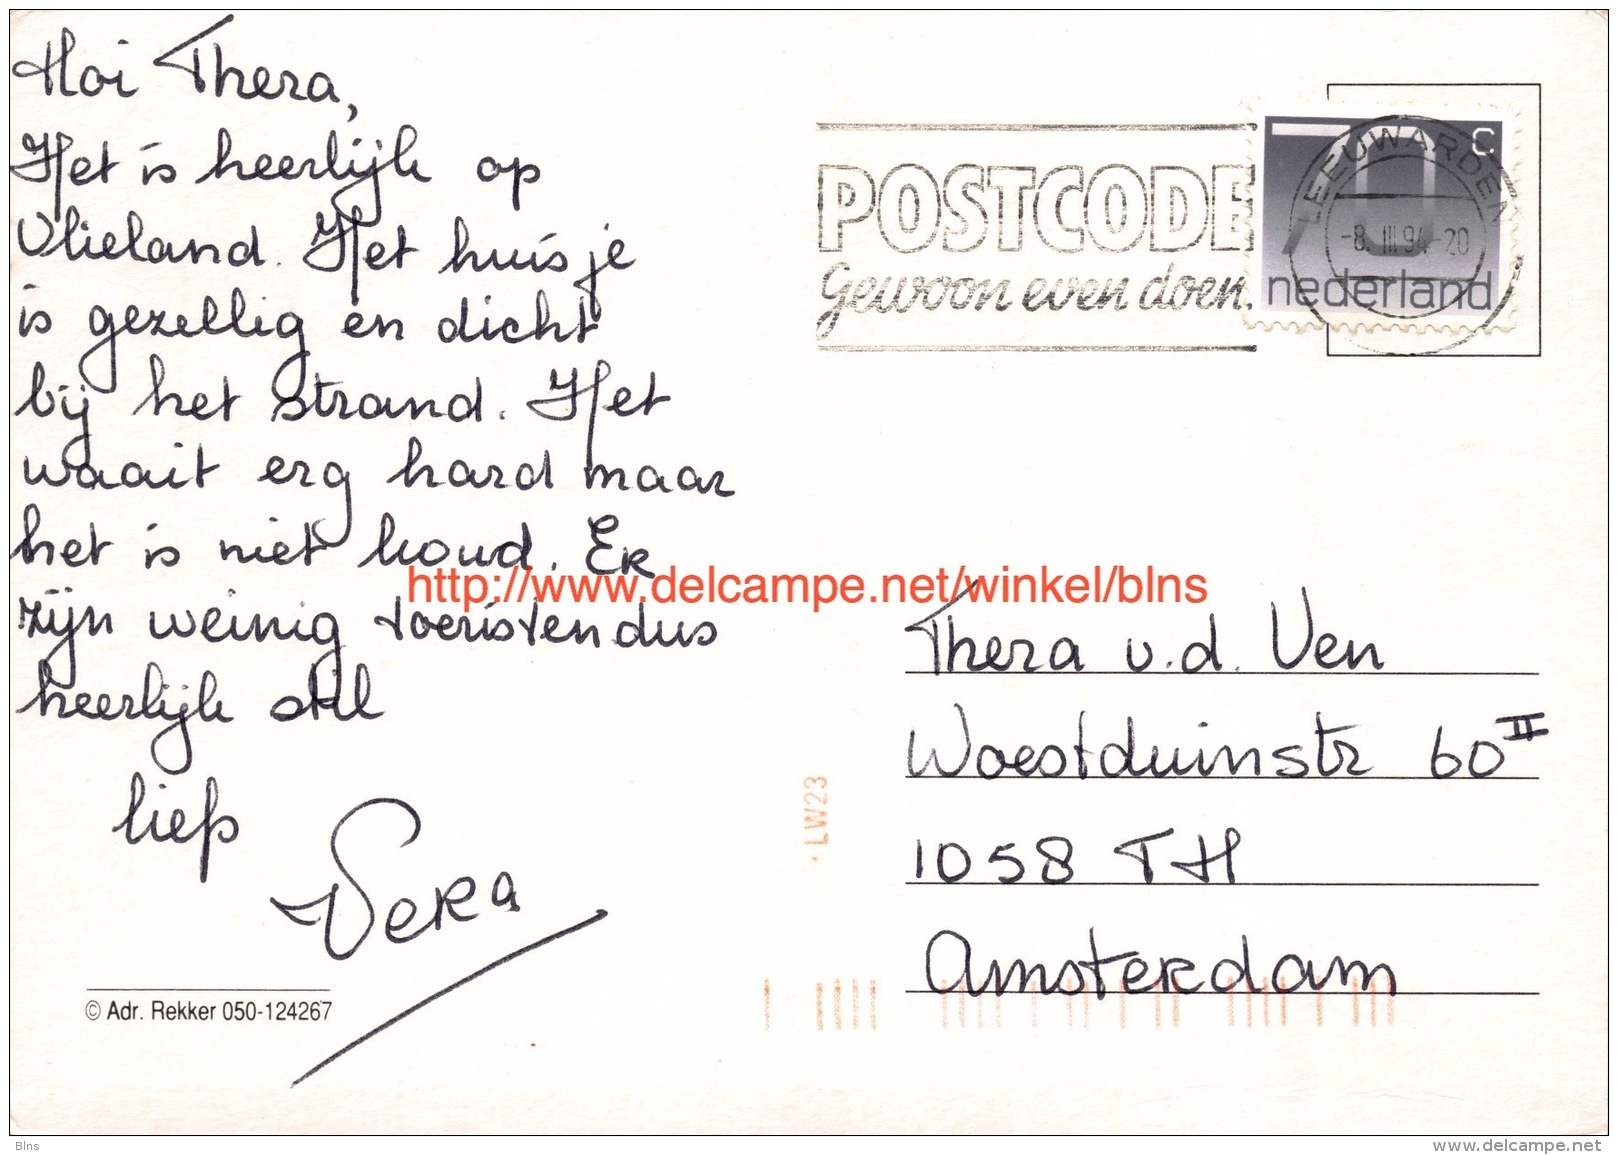 Hoi Thera,
Het is heerlijk op
Vlieland. Het huisje
is gezellig en dicht
bij het strand. Het
waait erg hard maar
het is niet koud. Er
zijn weinig toeristen dus
heerlijk stil
liefs
Vera
© Adr. Rekker 050-124267
POSTCODE
Gewoon even doen.
70 C
nederland
LEEUWARDEN
-8. III 94-20
http://www.delcampe.net/winkel/blns
Thera v.d. Ven
Woestduinstr 60 II
1058 TH
Amsterdam
LW23
Blns
www.delcampe.net